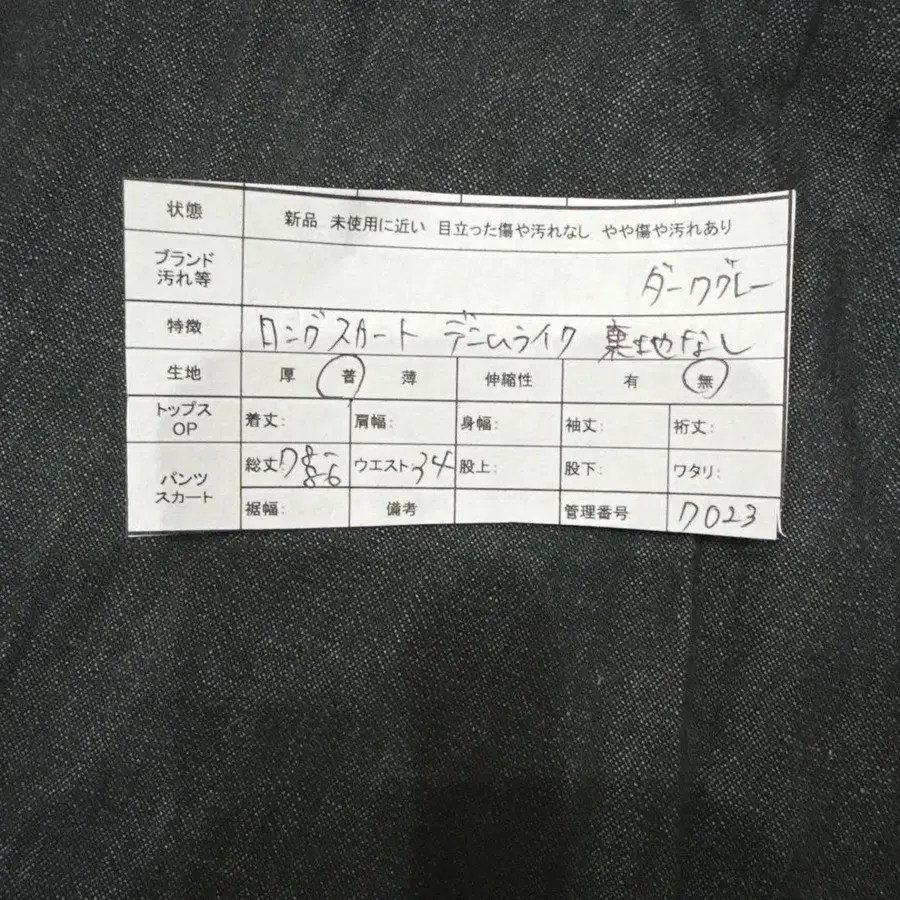 状態 新品 未使用に近い 目立った傷や汚れなし やや傷や汚れあり
ブランド
汚れ等 ダークグレー
特徴 ロングスカート デニムライク 裏地なし
生地 厚 普 薄 伸縮性 有 無
トップス
OP 着丈: 肩幅: 身幅: 袖丈: 裄丈:
パンツ
スカート 総丈 78-
86 ウエスト 34 股上: 股下: ワタリ:
裾幅: 備考 管理番号 7023